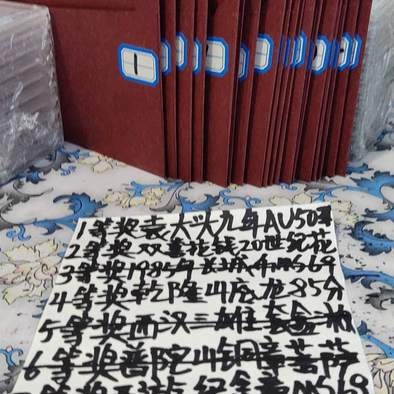 1
1等奖袁大头九年AU50
2等奖双喜花钱20世纪花
3等奖1985年长城币MS69
4等奖乾隆山庄龙85分
5等奖西汉三雄
6等奖普陀山铜章菩萨
等奖 纪念章MS69